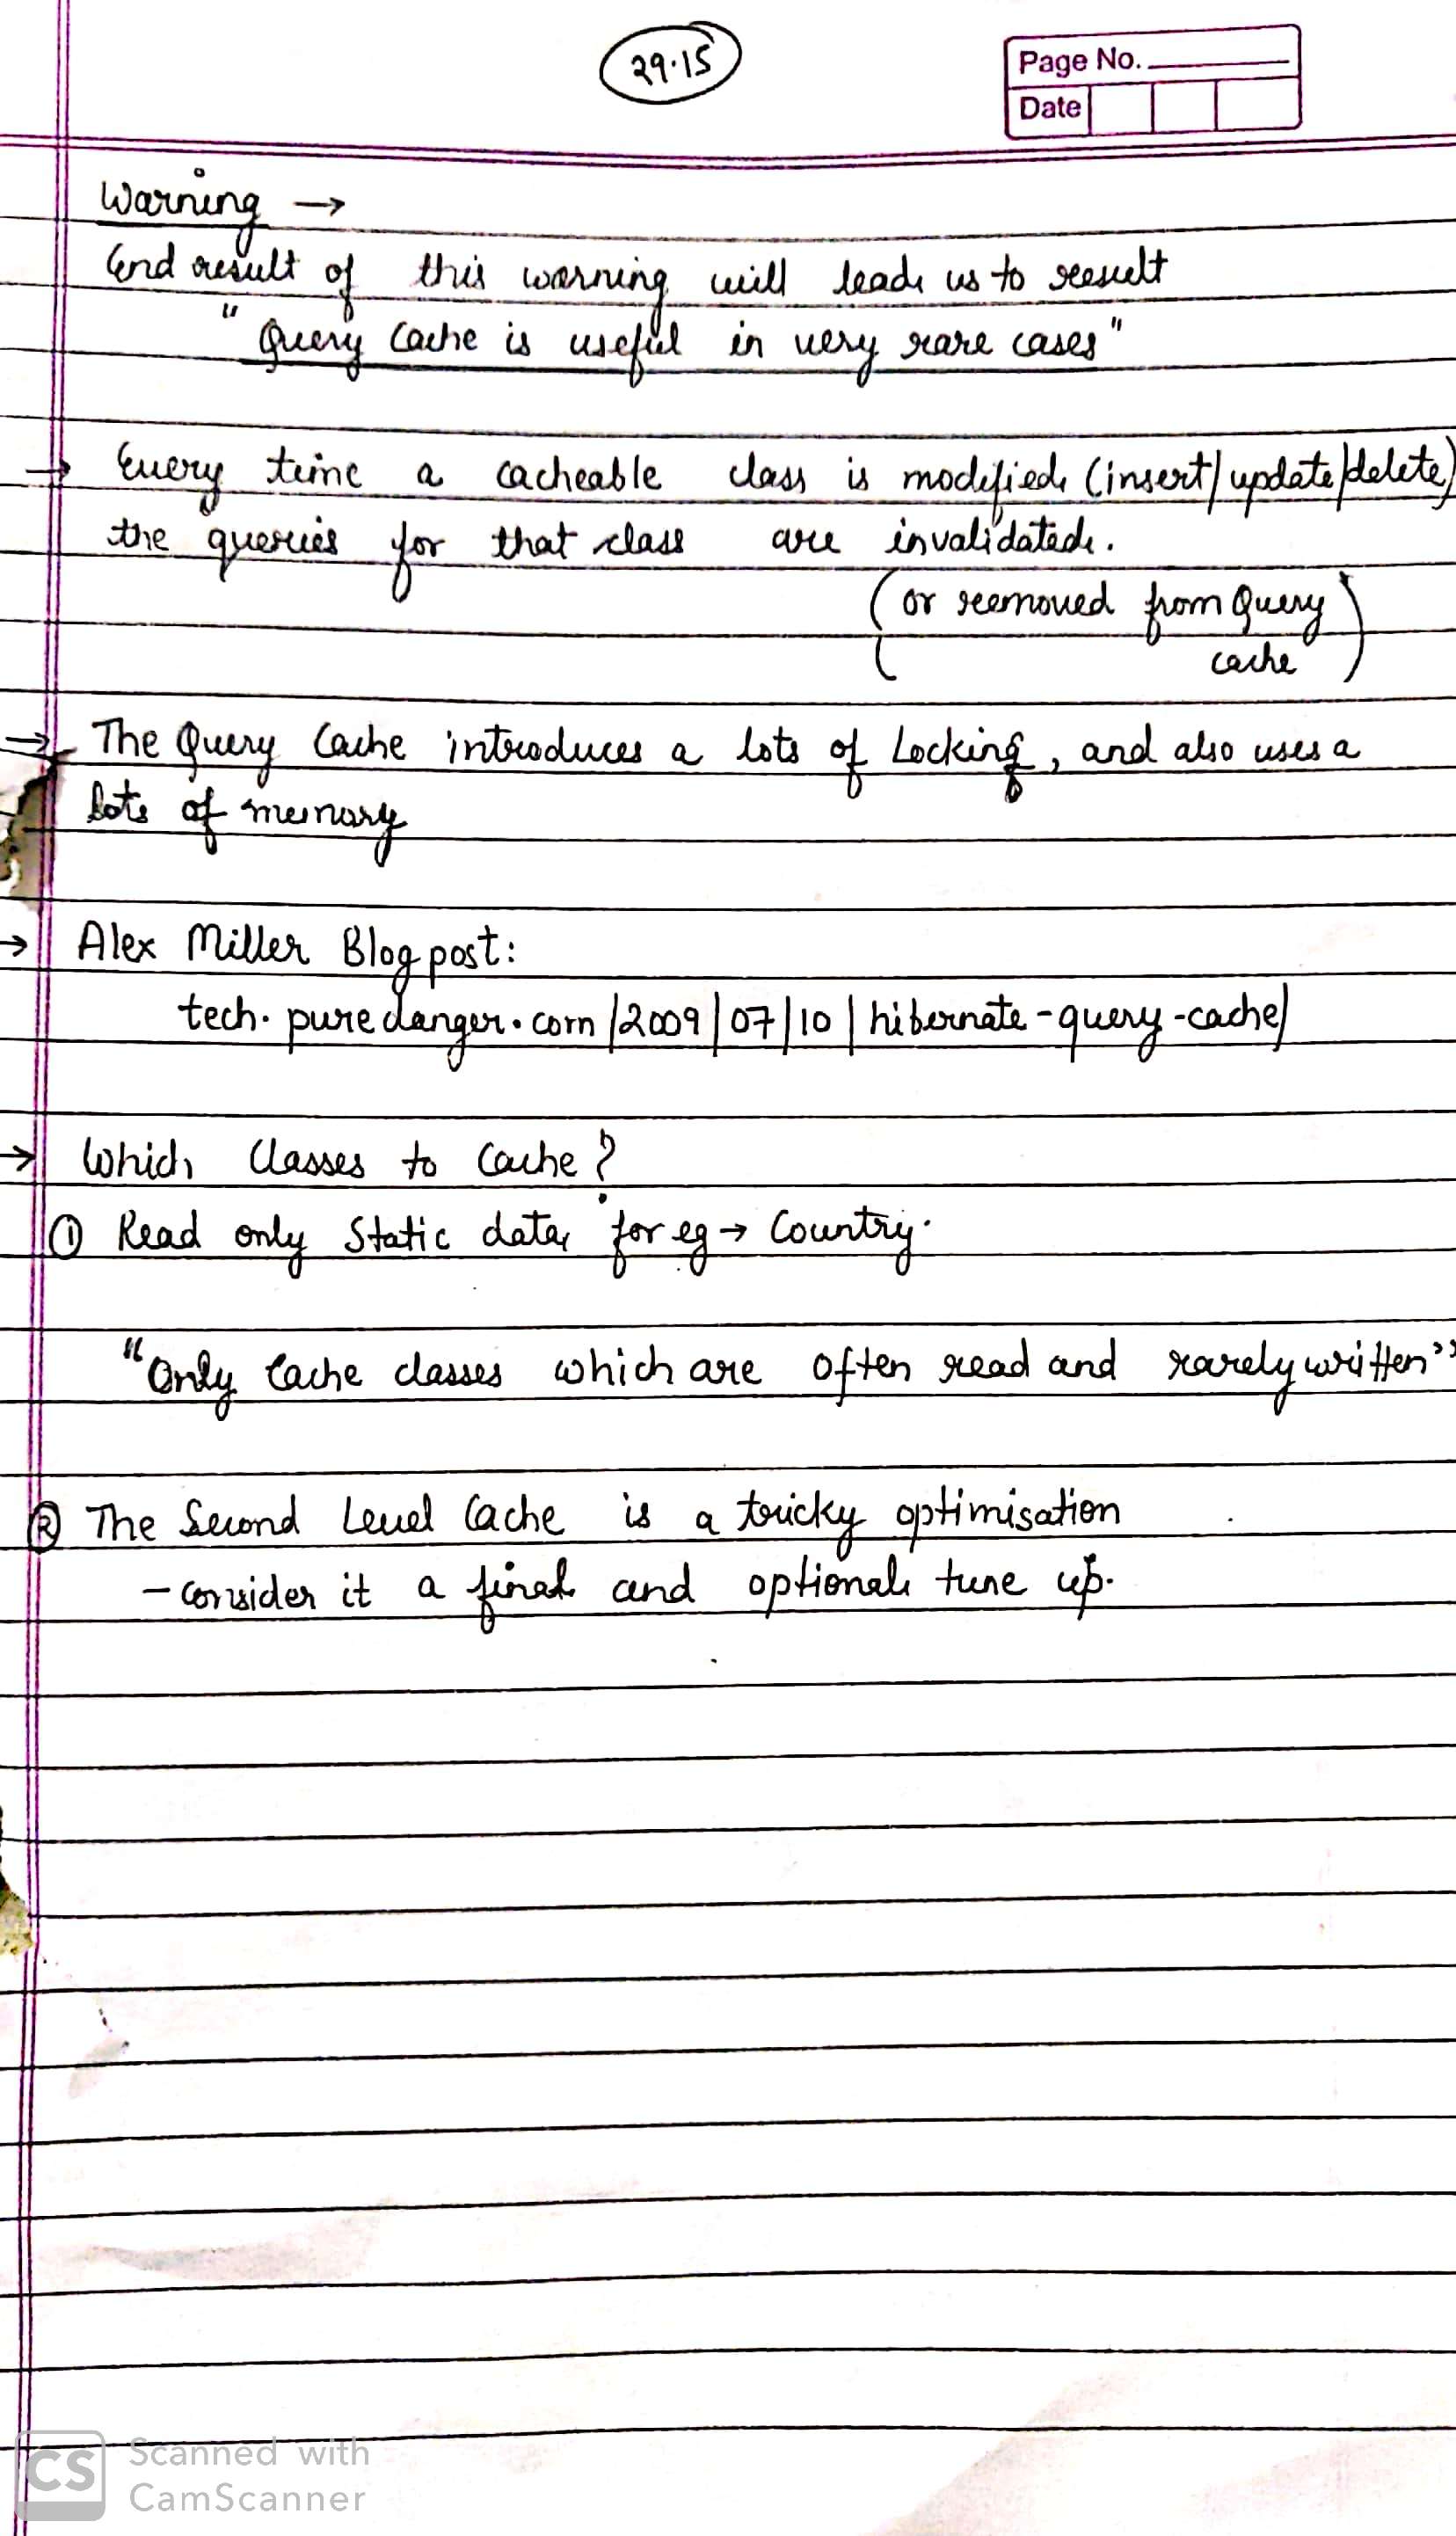 29.15
Page No.
Date
Warning →
End result of this warning will lead us to result
"Query Cache is useful in very rare cases"
→ Every time a cacheable class is modified (insert/update/delete)
the queries for that class are invalidated.
(or removed from Query
cache)
→ The Query Cache introduces a lots of Locking, and also uses a
lots of memory
→ Alex Miller Blog post:
tech.puredanger.com/2009/07/10/hibernate-query-cache/
→ Which Classes to Cache?
① Read only Static data, for eg → Country.
"Only Cache classes which are often read and rarely written"
② The Second Level Cache is a tricky optimisation
- consider it a final and optional tune up.
CS Scanned with
CamScanner